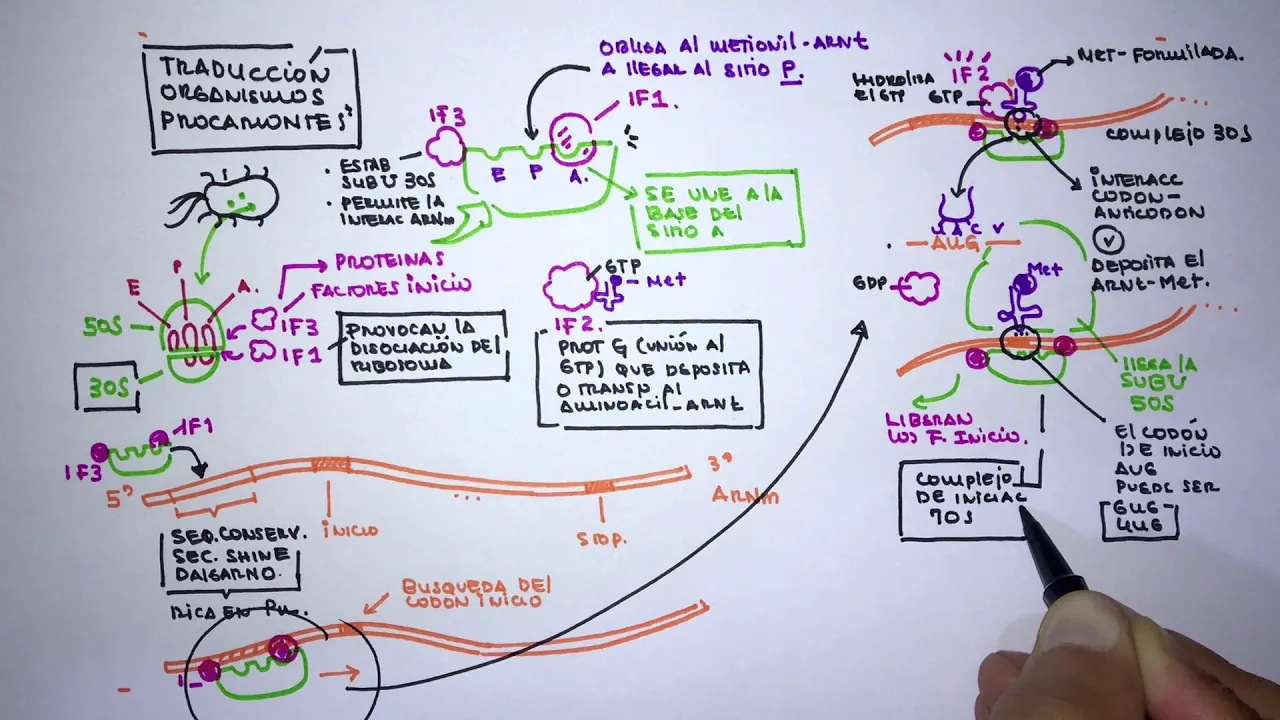 TRADUCCION
ORGANISMOS
PROCARIONTES
OBLIGA Al METIONIL-ARNt
A llEGAR Al SITIO P.
IF1.
IF3
• ESTAB
SUBU 30S
• PERMITE lA
INTERAC ARNm
E P A.
SE UNE A lA
BASE DEl
SITIO A
PROTEINAS
FACTORES INICIO
P
E
A.
50S
30S
IF3
IF1
PROVOCAN lA
DISOCIACIÓN DEl
RIBOSOMA
GTP
Met
IF2.
PROT G (UNIÓN Al
GTP) QUE DEPOSITA
O TRANSP. Al
AMINOACIL-ARNt
IF1
IF3
5'
3'
ARNm
...
INICIO
STOP.
SEQ.CONSERV.
SEC. SHINE
DALGARNO.
RICA EN PU.
BUSQUEDA DEl
CODÓN INICIO
HIDROLISA
El GTP
IF2
GTP
MET-FORMILADA.
COMPLEJO 30S
INTERACC
CODON-
ANTICODON
UAC
AUG
DEPOSITA El
ARNt-MET.
GDP
Met
llEGA lA
SUBU
50S
LIBERAN
lOS F. INICIO.
COMPLEJO
DE INICIAC
70S
El CODÓN
DE INICIO
AUG
PUEDE SER
GUG-
UUG